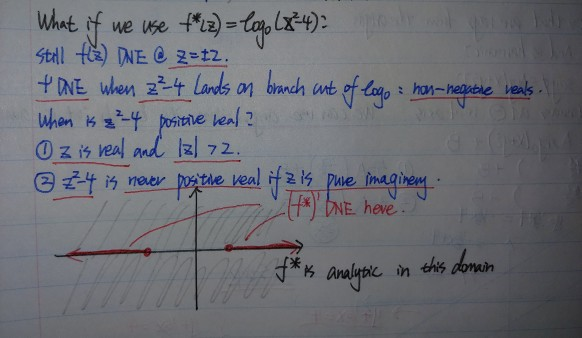 What if we use f*(z) = log₀(z²-4):
still f(z) DNE @ z=±2.
f' DNE when z²-4 lands on branch cut of log₀ : non-negative reals.
When is z²-4 positive real?
① z is real and |z| > 2.
② z²-4 is never positive real if z is pure imaginery.
(f*)' DNE here.
f* is analytic in this domain